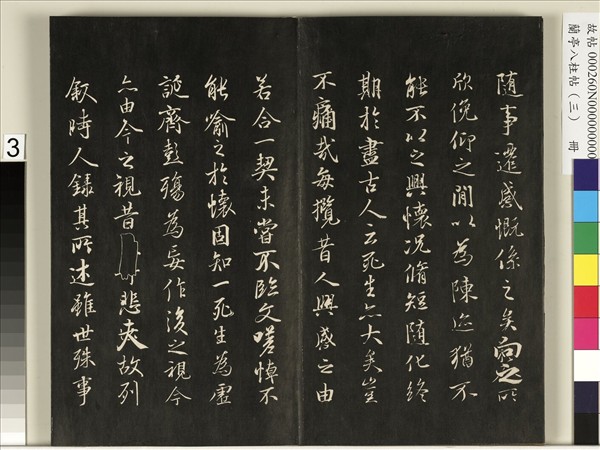 故帖 000260N000000000
蘭亭八柱帖（三） 冊
隨事遷感慨係之矣向之所
欣俛仰之閒以為陳迹猶不
能不以之興懷況脩短隨化終
期於盡古人云死生亦大矣豈
不痛哉每攬昔人興感之由
若合一契未嘗不臨文嗟悼不
能喻之於懷固知一死生為虛
誕齊彭殤為妄作後之視今
亦由今之視昔悲夫故列
敘時人錄其所述雖世殊事
3